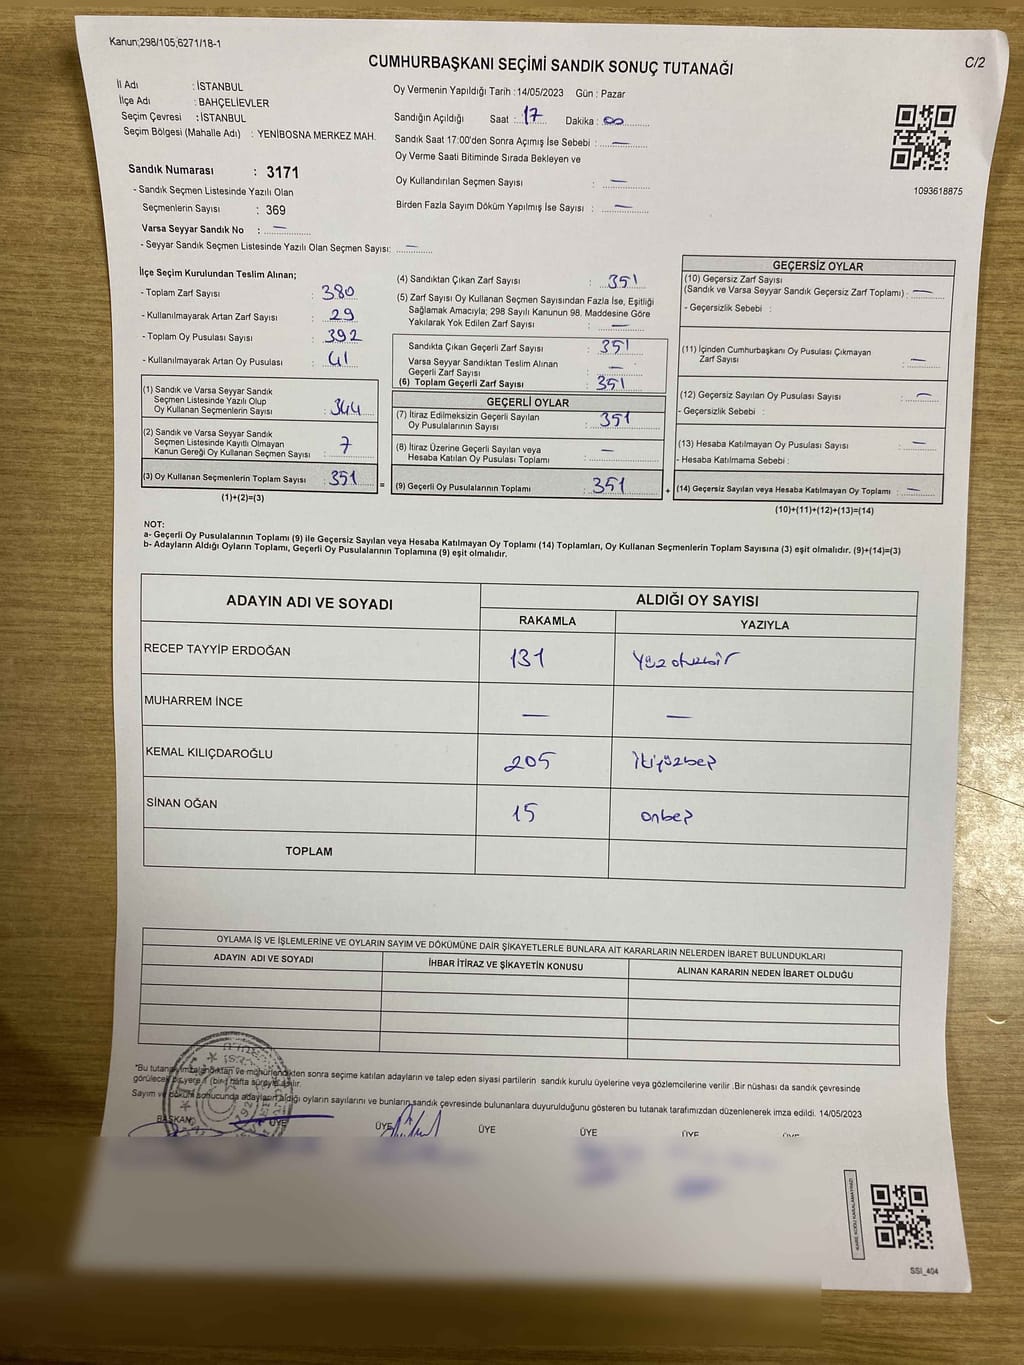 Kanun;298/105;6271/18-1
C/2
CUMHURBAŞKANI SEÇİMİ SANDIK SONUÇ TUTANAĞI
İl Adı : İSTANBUL
İlçe Adı : BAHÇELİEVLER
Seçim Çevresi : İSTANBUL
Seçim Bölgesi (Mahalle Adı) : YENİBOSNA MERKEZ MAH.
Sandık Numarası : 3171
- Sandık Seçmen Listesinde Yazılı Olan
Seçmenlerin Sayısı : 369
Varsa Seyyar Sandık No : —
- Seyyar Sandık Seçmen Listesinde Yazılı Olan Seçmen Sayısı: —
Oy Vermenin Yapıldığı Tarih : 14/05/2023 Gün : Pazar
Sandığın Açıldığı Saat : 17 Dakika : 00
Sandık Saat 17:00'den Sonra Açımış İse Sebebi : —
Oy Verme Saati Bitiminde Sırada Bekleyen ve
Oy Kullandırılan Seçmen Sayısı : —
Birden Fazla Sayım Döküm Yapılmış İse Sayısı : —
1093618875
İlçe Seçim Kurulundan Teslim Alınan;
- Toplam Zarf Sayısı : 380
- Kullanılmayarak Artan Zarf Sayısı : 29
- Toplam Oy Pusulası Sayısı : 392
- Kullanılmayarak Artan Oy Pusulası : 41
(1) Sandık ve Varsa Seyyar Sandık
Seçmen Listesinde Yazılı Olup
Oy Kullanan Seçmenlerin Sayısı : 344
(2) Sandık ve Varsa Seyyar Sandık
Seçmen Listesinde Kayıtlı Olmayan
Kanun Gereği Oy Kullanan Seçmen Sayısı : 7
(3) Oy Kullanan Seçmenlerin Toplam Sayısı : 351
(1)+(2)=(3)
(4) Sandıktan Çıkan Zarf Sayısı : 351
(5) Zarf Sayısı Oy Kullanan Seçmen Sayısından Fazla İse, Eşitliği
Sağlamak Amacıyla; 298 Sayılı Kanunun 98. Maddesine Göre
Yakılarak Yok Edilen Zarf Sayısı : —
Sandıkta Çıkan Geçerli Zarf Sayısı : 351
Varsa Seyyar Sandıktan Teslim Alınan
Geçerli Zarf Sayısı : —
(6) Toplam Geçerli Zarf Sayısı : 351
GEÇERLİ OYLAR
(7) İtiraz Edilmeksizin Geçerli Sayılan
Oy Pusulalarının Sayısı : 351
(8) İtiraz Üzerine Geçerli Sayılan veya
Hesaba Katılan Oy Pusulası Toplamı : —
= (9) Geçerli Oy Pusulalarının Toplamı : 351 +
GEÇERSİZ OYLAR
(10) Geçersiz Zarf Sayısı
(Sandık ve Varsa Seyyar Sandık Geçersiz Zarf Toplamı) : —
- Geçersizlik Sebebi :
(11) İçinden Cumhurbaşkanı Oy Pusulası Çıkmayan
Zarf Sayısı : —
(12) Geçersiz Sayılan Oy Pusulası Sayısı : —
- Geçersizlik Sebebi :
(13) Hesaba Katılmayan Oy Pusulası Sayısı : —
- Hesaba Katılmama Sebebi :
(14) Geçersiz Sayılan veya Hesaba Katılmayan Oy Toplamı : —
(10)+(11)+(12)+(13)=(14)
NOT:
a- Geçerli Oy Pusulalarının Toplamı (9) ile Geçersiz Sayılan veya Hesaba Katılmayan Oy Toplamı (14) Toplamları, Oy Kullanan Seçmenlerin Toplam Sayısına (3) eşit olmalıdır. (9)+(14)=(3)
b- Adayların Aldığı Oyların Toplamı, Geçerli Oy Pusulalarının Toplamına (9) eşit olmalıdır.
ADAYIN ADI VE SOYADI ALDIĞI OY SAYISI
RAKAMLA YAZIYLA
RECEP TAYYİP ERDOĞAN 131 Yüzotuzbir
MUHARREM İNCE — —
KEMAL KILIÇDAROĞLU 205 İkiyüzbeş
SİNAN OĞAN 15 onbeş
TOPLAM
OYLAMA İŞ VE İŞLEMLERİNE VE OYLARIN SAYIM VE DÖKÜMÜNE DAİR ŞİKAYETLERLE BUNLARA AİT KARARLARIN NELERDEN İBARET BULUNDUKLARI
ADAYIN ADI VE SOYADI İHBAR İTİRAZ VE ŞİKAYETİN KONUSU ALINAN KARARIN NEDEN İBARET OLDUĞU
*Bu tutanak imzalandıktan ve mühürlendikten sonra seçime katılan adayların ve talep eden siyasi partilerin sandık kurulu üyelerine veya gözlemcilerine verilir .Bir nüshası da sandık çevresinde
görülecek bir yere 1 (bir) hafta süreyle asılır.
Sayım ve döküm sonucunda adayların aldığı oyların sayılarını ve bunların sandık çevresinde bulunanlara duyurulduğunu gösteren bu tutanak tarafımızdan düzenlenerek imza edildi. 14/05/2023
BAŞKAN ÜYE ÜYE ÜYE ÜYE ÜYE ÜYE
SSI_404